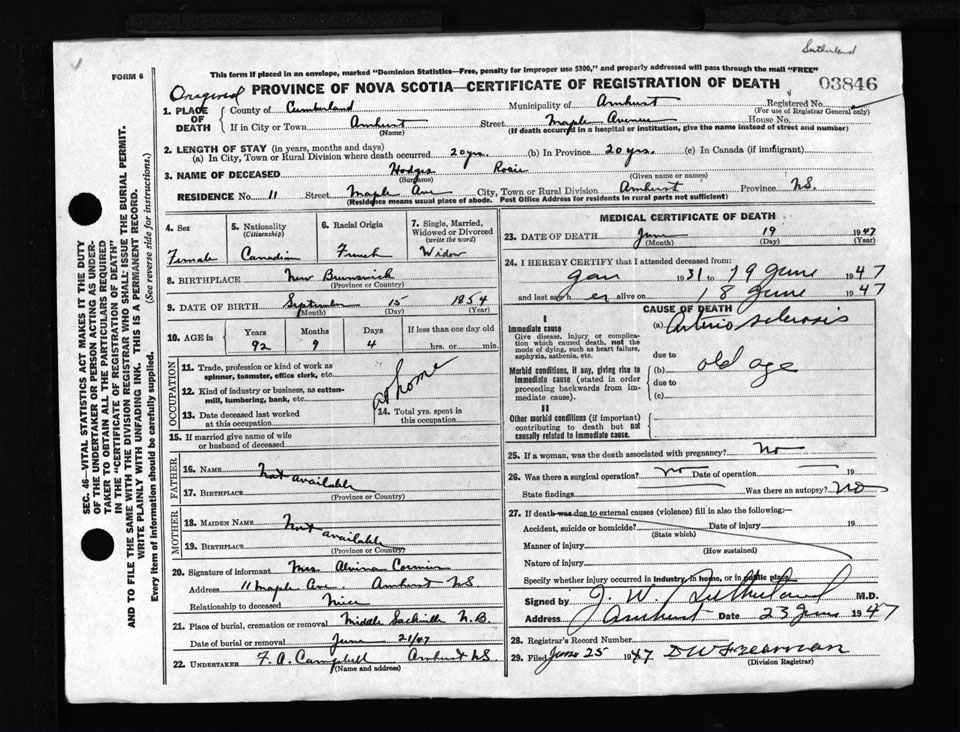 Sutherland
FORM 6
This form if placed in an envelope, marked "Dominion Statistics—Free, penalty for improper use $300," and properly addressed will pass through the mail "FREE"
PROVINCE OF NOVA SCOTIA—CERTIFICATE OF REGISTRATION OF DEATH
03846
1. PLACE OF DEATH
County of Cumberland Municipality of Amherst Registered No.
(For use of Registrar General only)
If in City or Town Amherst Street Maple Avenue House No.
(Name) (If death occurred in a hospital or institution, give the name instead of street and number)
2. LENGTH OF STAY (in years, months and days)
(a) In City, Town or Rural Division where death occurred 20 yrs. (b) In Province 20 yrs. (c) In Canada (if immigrant)
3. NAME OF DECEASED Hodges Rosie
(Surname) (Given name or names)
RESIDENCE No. 11 Street Maple Ave City, Town or Rural Division Amherst Province N.S.
(Residence means usual place of abode. Post Office Address for residents in rural parts not sufficient)
4. Sex
Female
5. Nationality
(Citizenship)
Canadian
6. Racial Origin
French
7. Single, Married, Widowed or Divorced
(write the word)
Widow
8. BIRTHPLACE New Brunswick
(Province or Country)
9. DATE OF BIRTH September 15 1854
(Month) (Day) (Year)
10. AGE in Years Months Days If less than one day old
92 9 4 hrs. or min.
OCCUPATION
11. Trade, profession or kind of work as spinner, teamster, office clerk, etc.
12. Kind of industry or business, as cotton-mill, lumbering, bank, etc.
at home
13. Date deceased last worked at this occupation
14. Total yrs. spent in this occupation
15. If married give name of wife or husband of deceased
FATHER
16. NAME Not available
17. BIRTHPLACE
(Province or Country)
MOTHER
18. MAIDEN NAME Not available
19. BIRTHPLACE
(Province or Country)
20. Signature of informant Mrs. Alvina Cormier
Address 11 Maple Ave. Amherst N.S.
Relationship to deceased Niece
21. Place of burial, cremation or removal Middle Sackville N.B.
Date of burial or removal June 21/47
22. UNDERTAKER F. A. Campbell Amherst N.S.
(Name and address)
MEDICAL CERTIFICATE OF DEATH
23. DATE OF DEATH June 19 1947
(Month) (Day) (Year)
24. I HEREBY CERTIFY that I attended deceased from:
Jan 1931 to 19 June 1947
and last saw her alive on 18 June 1947
CAUSE OF DEATH
I
Immediate cause
Give disease, injury or complication which caused death, not the mode of dying, such as heart failure, asphyxia, asthenia, etc.
(a) Arterio sclerosis
due to
Morbid conditions, if any, giving rise to immediate cause (stated in order proceeding backwards from immediate cause).
(b) old age
due to
(c)
II
Other morbid conditions (if important) contributing to death but not causally related to immediate cause.
25. If a woman, was the death associated with pregnancy? No
26. Was there a surgical operation? No Date of operation 19
State findings Was there an autopsy? No
27. If death was due to external causes (violence) fill in also the following:—
Accident, suicide or homicide? Date of injury 19
(State which)
Manner of injury
(How sustained)
Nature of injury
Specify whether injury occurred in industry, in home, or in public place
Signed by J. W. Sutherland M.D.
Address Amherst Date 23 June 1947
28. Registrar's Record Number
29. Filed June 25 1947 D W Freeman
(Division Registrar)
SEC. 46—VITAL STATISTICS ACT MAKES IT THE DUTY
OF THE UNDERTAKER OR PERSON ACTING AS UNDER-
TAKER TO OBTAIN ALL THE PARTICULARS REQUIRED
IN THE "CERTIFICATE OF REGISTRATION OF DEATH"
AND TO FILE THE SAME WITH THE DIVISION REGISTRAR WHO SHALL ISSUE THE BURIAL PERMIT.
WRITE PLAINLY WITH UNFADING INK. THIS IS A PERMANENT RECORD.
Every item of information should be carefully supplied. (See reverse side for instructions.)